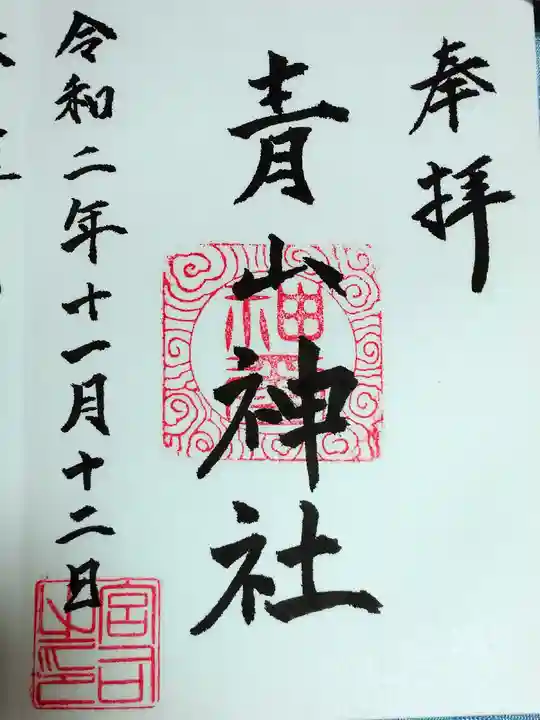 奉拝
青山神社
令和二年十一月十二日
宮司之印